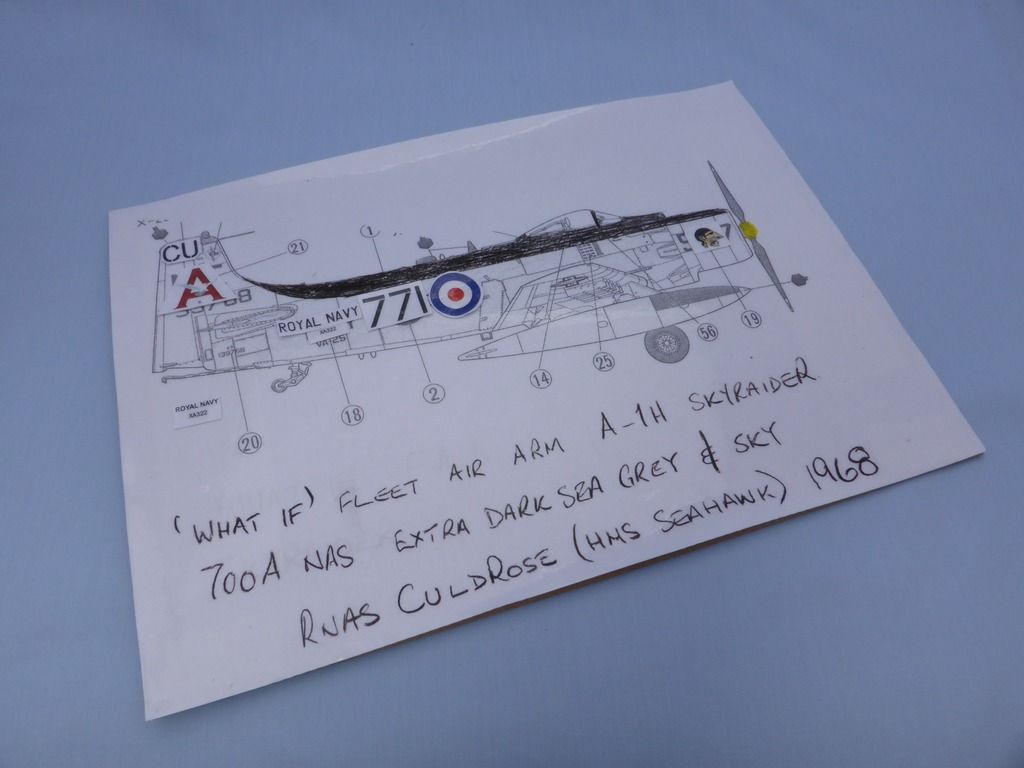 CU
A
21
1
7
771
ROYAL NAVY
XA322
VA-25
ROYAL NAVY
XA322
20
18
2
14
25
56
19
'WHAT IF' FLEET AIR ARM A-1H SKYRAIDER
700A NAS EXTRA DARK SEA GREY & SKY
RNAS CULDROSE (HMS SEAHAWK) 1968